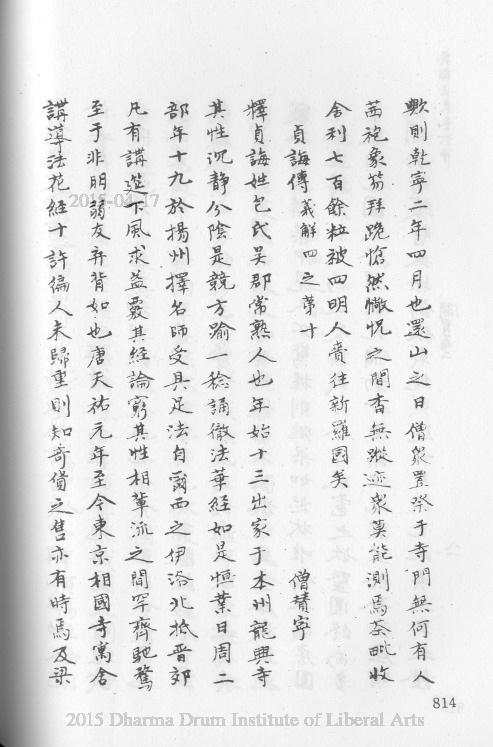 歟則乾寧二年四月也還山之日僧眾置祭于寺門無何有人
茜袍象笏拜跪愴然慨怳之間杳無蹤迹眾莫能測焉荼毗收
舍利七百餘粒被四明人賫往新羅國矣
貞誨傳 義解四之苐十 僧贊寧
釋貞誨姓包氏吳郡常熟人也年始十三出家于本州龍興寺
其性沉靜分陰是競方踰一稔誦徹法華經如是恒業日周二
部年十九於揚州擇名師受具足法自爾西之伊洛北抵晉郊
凡有講筵下風求益覈其經論窮其性相輩流之間罕齊馳騖
至于非朋翦友弃背如也唐天祐元年至今東京相國寺寓舍
講導法花經十許徧人未歸重則知奇貨之售亦有時焉及梁
814
2015-04-17
2015 Dharma Drum Institute of Liberal Arts